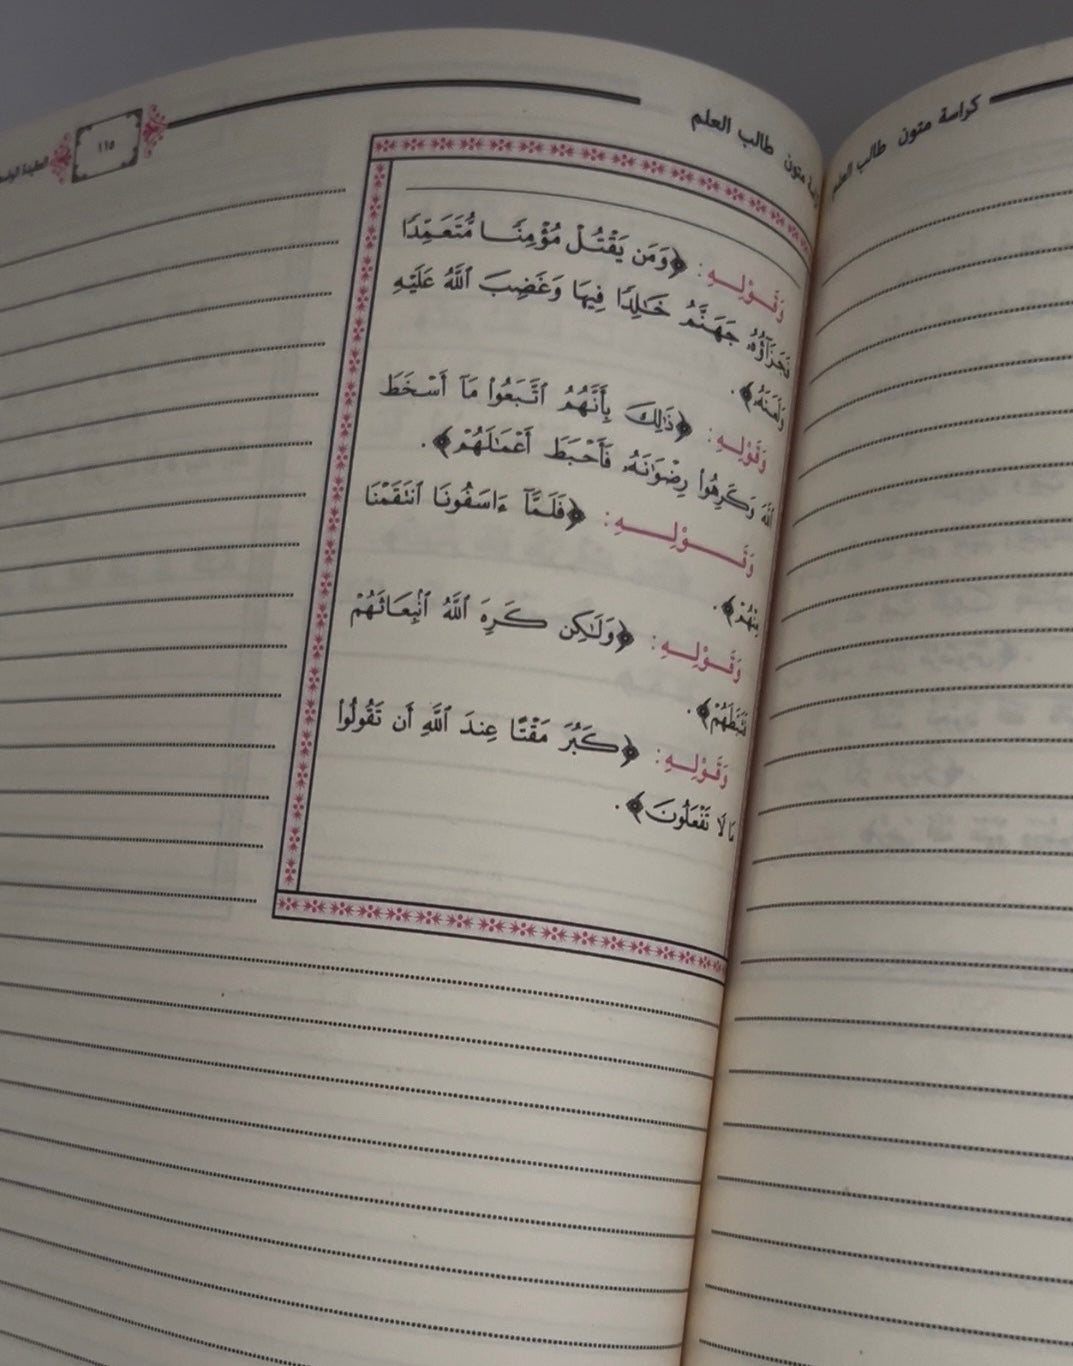 كراسة متون طالب العلم
متون طالب العلم
١١٥
العقيدة
وَقَوْلِهِ: ﴿وَمَن يَقْتُلْ مُؤْمِنًا مُّتَعَمِّدًا
فَجَزَآؤُهُۥ جَهَنَّمُ خَٰلِدًا فِيهَا وَغَضِبَ ٱللَّهُ عَلَيْهِ
وَلَعَنَهُۥ﴾.
وَقَوْلِهِ: ﴿ذَٰلِكَ بِأَنَّهُمُ ٱتَّبَعُوا۟ مَآ أَسْخَطَ
ٱللَّهَ وَكَرِهُوا۟ رِضْوَٰنَهُۥ فَأَحْبَطَ أَعْمَٰلَهُمْ﴾.
وَقَوْلِهِ: ﴿فَلَمَّآ ءَاسَفُونَا ٱنتَقَمْنَا
مِنْهُمْ﴾.
وَقَوْلِهِ: ﴿وَلَٰكِن كَرِهَ ٱللَّهُ ٱنۢبِعَاثَهُمْ
فَثَبَّطَهُمْ﴾.
وَقَوْلِهِ: ﴿كَبُرَ مَقْتًا عِندَ ٱللَّهِ أَن تَقُولُوا۟
مَا لَا تَفْعَلُونَ﴾.